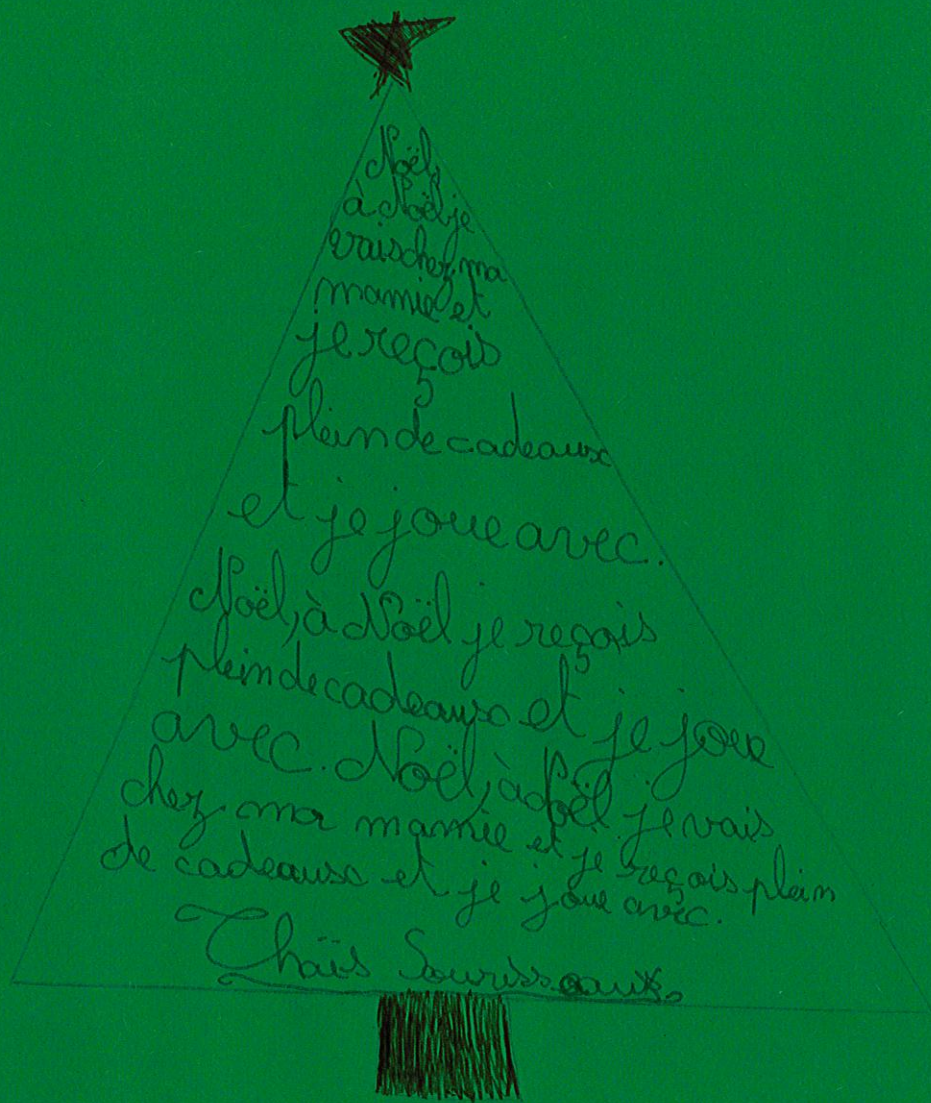 Noël,
à Noël je
vais chez ma
mamie et
je reçois
plein de cadeaux
et je joue avec.
Noël, à Noël je reçois
plein de cadeaux et je joue
avec. Noël, à Noël je vais
chez ma mamie et je reçois plein
de cadeaux et je joue avec.
Thaïs Sourisseaux